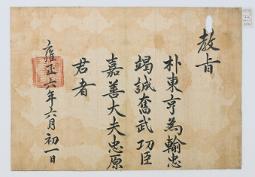 教旨
朴東亨為輸忠
竭誠奮武功臣
嘉善大夫忠原
君者
雍正六年六月初一日